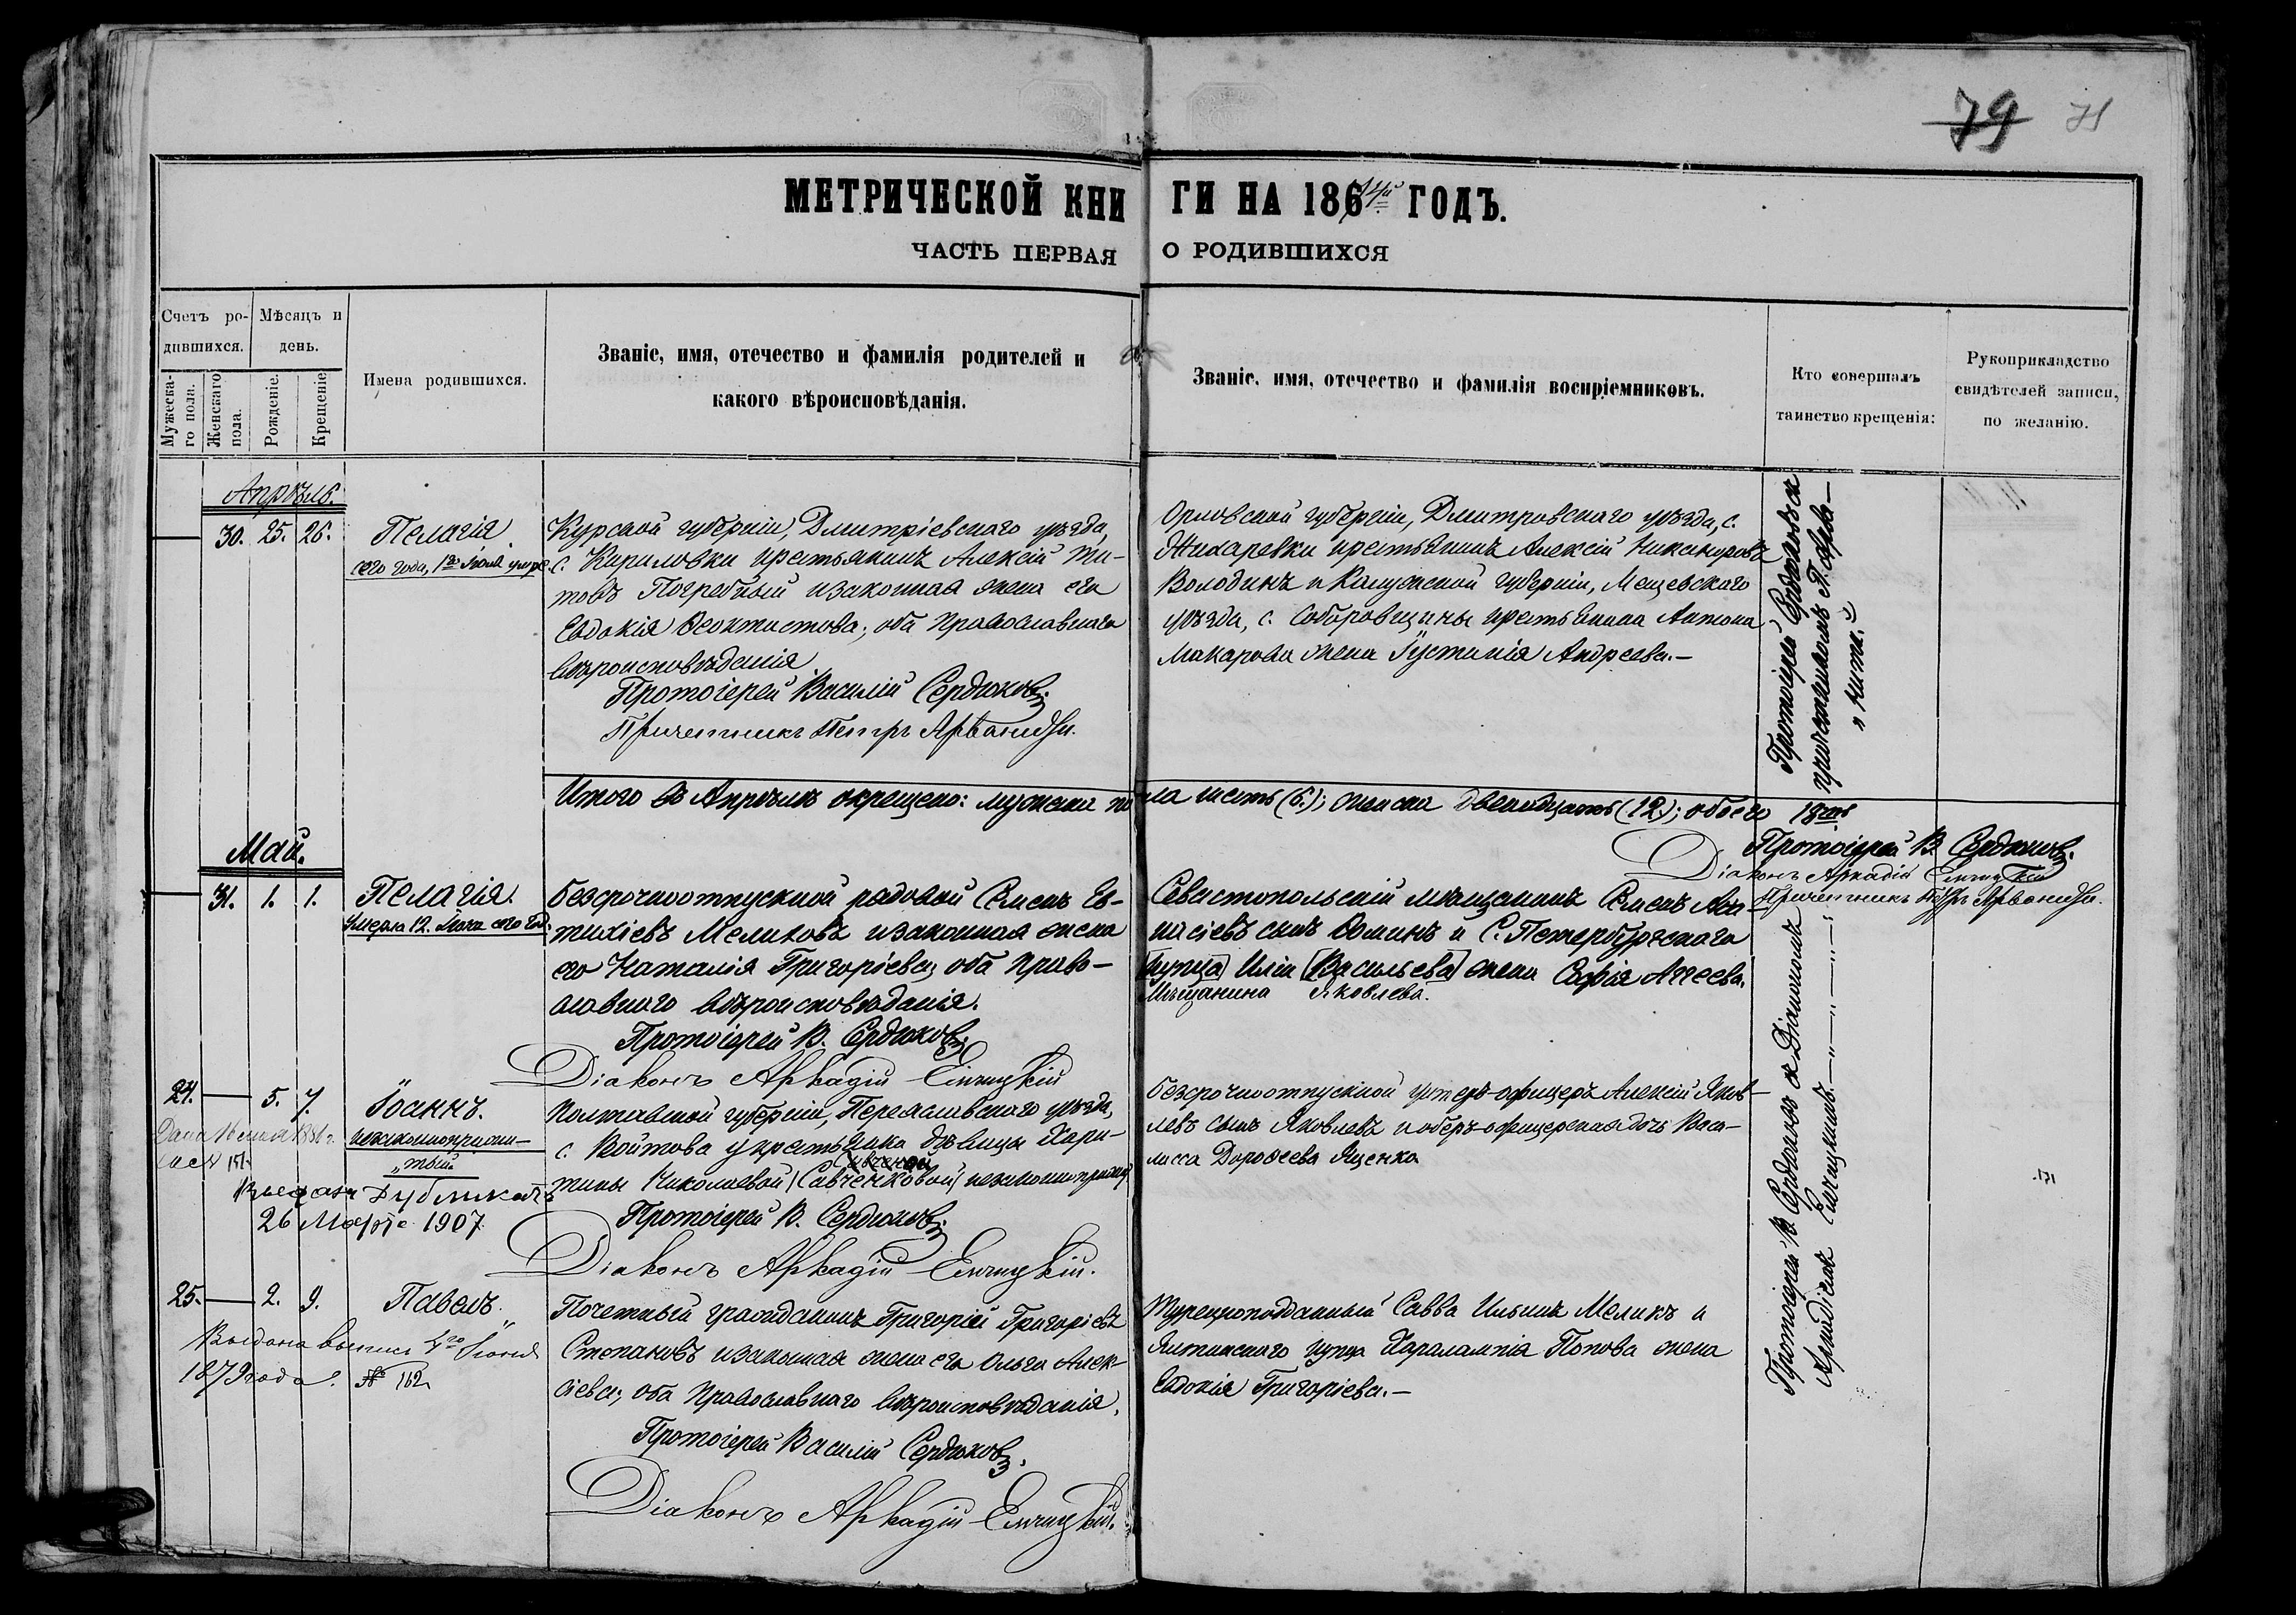 79 71
МЕТРИЧЕСКОЙ КНИ ГИ НА 1874й ГОДЪ.
ЧАСТЬ ПЕРВАЯ О РОДИВШИХСЯ
Счетъ ро-
дившихся.
Мужеска-
го пола.
Женскаго
пола.
Мѣсяцъ и
день.
Рожденіе.
Крещеніе
Имена родившихся.
Званіе, имя, отечество и фамилія родителей и
какого вѣроисповѣданія.
Званіе, имя, отечество и фамилія воспріемниковъ.
Кто совершалъ
таинство крещенія:
Рукоприкладство
свидѣтелей записи,
по желанію.
Апрѣль.
30. 25. 26.
Пелагія
сего года, 1го Іюля умре
Курской губерніи, Дмитріевскаго уѣзда,
с. Кириловки крестьянинъ Алексій Ти-
товъ Погребный и законная жена его
Евдокія Ѳеоктистова; оба Православнаго
вѣроисповѣданія
Протоіерей Василій Сердюковъ.
Причетникъ Петръ Арваниди.
Орловской губерніи, Дмитровскаго уѣзда, с.
Жихаревки крестьянинъ Алексій Никаноровъ
Володинъ и Калужской губерніи, Мещевскаго
уѣзда, с. Собровщины крестьянина Антона
Макарова жена Іустинія Андреева.—
Протоіерей Сердюковъ съ
причетникомъ П. Арва—
„ нити.
Итого въ Апрѣлѣ окрещено: мужеска пола шесть (6.); женска двенадцать (12.); обоего 18ть
Протоіерей В. Сердюковъ.
Діаконъ Аркадій Енчицкій
Причетникъ Петръ Арваниди.
Май.
31. 1. 1.
Пелагія.
Умерла 12. Іюля сего год.
Безсрочноотпускной рядовой Семенъ Ев-
тихіевъ Мелиховъ и законная жена
его Наталія Григоріева; оба право-
славнаго вѣроисповѣданія.
Протоіерей В. Сердюковъ.
Діаконъ Аркадій Енчицкій
Севастопольскій мѣщанинъ Семенъ Аѳа-
насіевъ сынъ Ѳоминъ и С. Петербургскаго
[купца] Иліи [Васильева] жена Софія Аггеева.
Мѣщанина Яковлева.
24. 5. 7.
Іоаннъ.
незаконноприжи-
„тый
Дана 16 1881 г.
за № 151.
Выданъ Дубликатъ
26 Марта 1907
Полтавской губерніи, Переяславскаго уѣзда,
с. Войтова у крестьянки дѣвицы Хари-
тины Николаевой (Савченковой) незаконноприжит
Протоіерей В. Сердюковъ.
Діаконъ Аркадій Енчицкій.
Безсрочноотпускной унтеръ-офицеръ Алексій Яков-
левъ сынъ Яковлевъ и оберъ-офицерская дочь Васи-
лисса Дороѳеева Яценко
25. 2. 9.
Павелъ.
Выдана выпись 4го Іюня
1879 года. № 162
Почетный гражданинъ Григорій Григоріевъ
Степановъ и законная жена его Ольга Алек-
сіева; оба Православнаго вѣроисповѣданія.
Протоіерей Василій Сердюковъ.
Діаконъ Аркадій Енчицкій.
Турецкоподданный Савва Ильинъ Меликъ и
Ялтинскаго купца Харалампія Попова жена
Евдокія Григоріева.—
Протоіерей В. Сердюковъ съ Діакономъ
Аркадіемъ Енчицкимъ. — „ — „ — „ — „